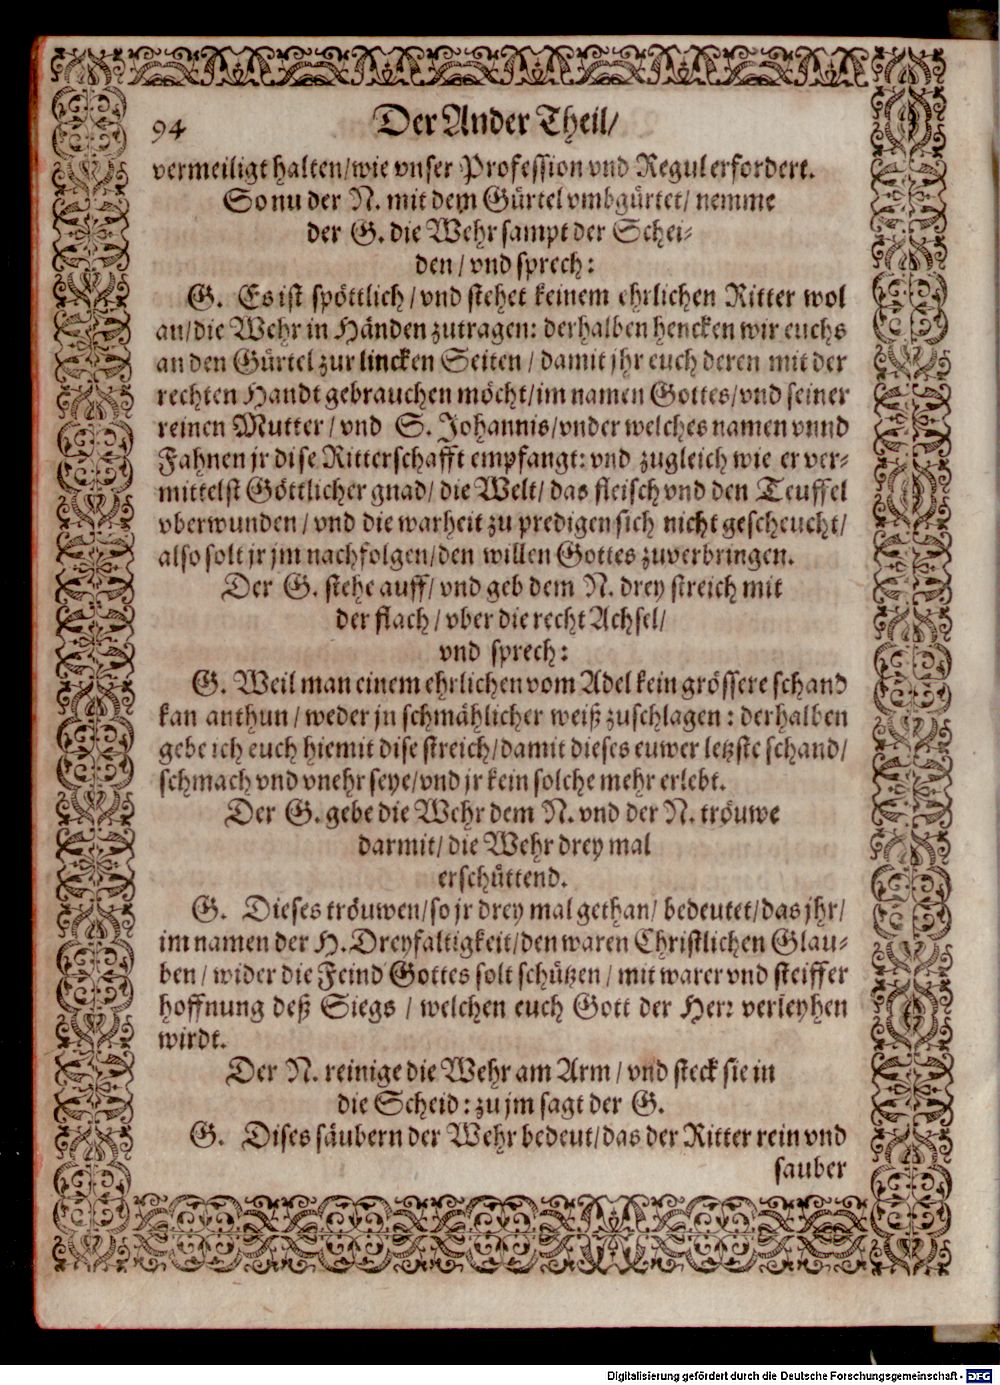 94 Der Ander Theil/
vermeiligt halten/wie vnser Profession vnd Regul erfordert.
So nu der N. mit dem Gürtel vmbgürtet/ nemme
der G. die Wehr sampt der Schei-
den/ vnd sprech:
G. Es ist spöttlich/ vnd stehet keinem ehrlichen Ritter wol
an/die Wehr in Händen zutragen: derhalben hencken wir euchs
an den Gürtel zur lincken Seiten/ damit jhr euch deren mit der
rechten Handt gebrauchen möcht/im namen Gottes/vnd seiner
reinen Mutter/ vnd S. Johannis/vnder welches namen vnnd
Fahnen jr dise Ritterschafft empfangt: vnd zugleich wie er ver-
mittelst Göttlicher gnad/ die Welt/ das fleisch vnd den Teuffel
vberwunden/ vnd die warheit zu predigen sich nicht gescheucht/
also solt jr jm nachfolgen/den willen Gottes zuverbringen.
Der G. stehe auff/ vnd geb dem N. drey streich mit
der flach/ vber die recht Achsel/
vnd sprech:
G. Weil man einem ehrlichen vom Adel kein grössere schand
kan anthun/ weder jn schmählicher weiß zuschlagen: derhalben
gebe ich euch hiemit dise streich/damit dieses euwer letzste schand/
schmach vnd vnehr seye/vnd jr kein solche mehr erlebt.
Der G. gebe die Wehr dem N. vnd der N. tröuwe
darmit/ die Wehr drey mal
erschüttend.
G. Dieses tröuwen/so jr drey mal gethan/ bedeutet/das jhr/
im namen der H. Dreyfaltigkeit/den waren Christlichen Glau-
ben/ wider die Feind Gottes solt schützen/ mit warer vnd steiffer
hoffnung deß Siegs/ welchen euch Gott der Herr verleyhen
wirdt.
Der N. reinige die Wehr am Arm/ vnd steck sie in
die Scheid: zu jm sagt der G.
G. Dises säubern der Wehr bedeut/das der Ritter rein vnd
sauber
Digitalisierung gefördert durch die Deutsche Forschungsgemeinschaft - DFG